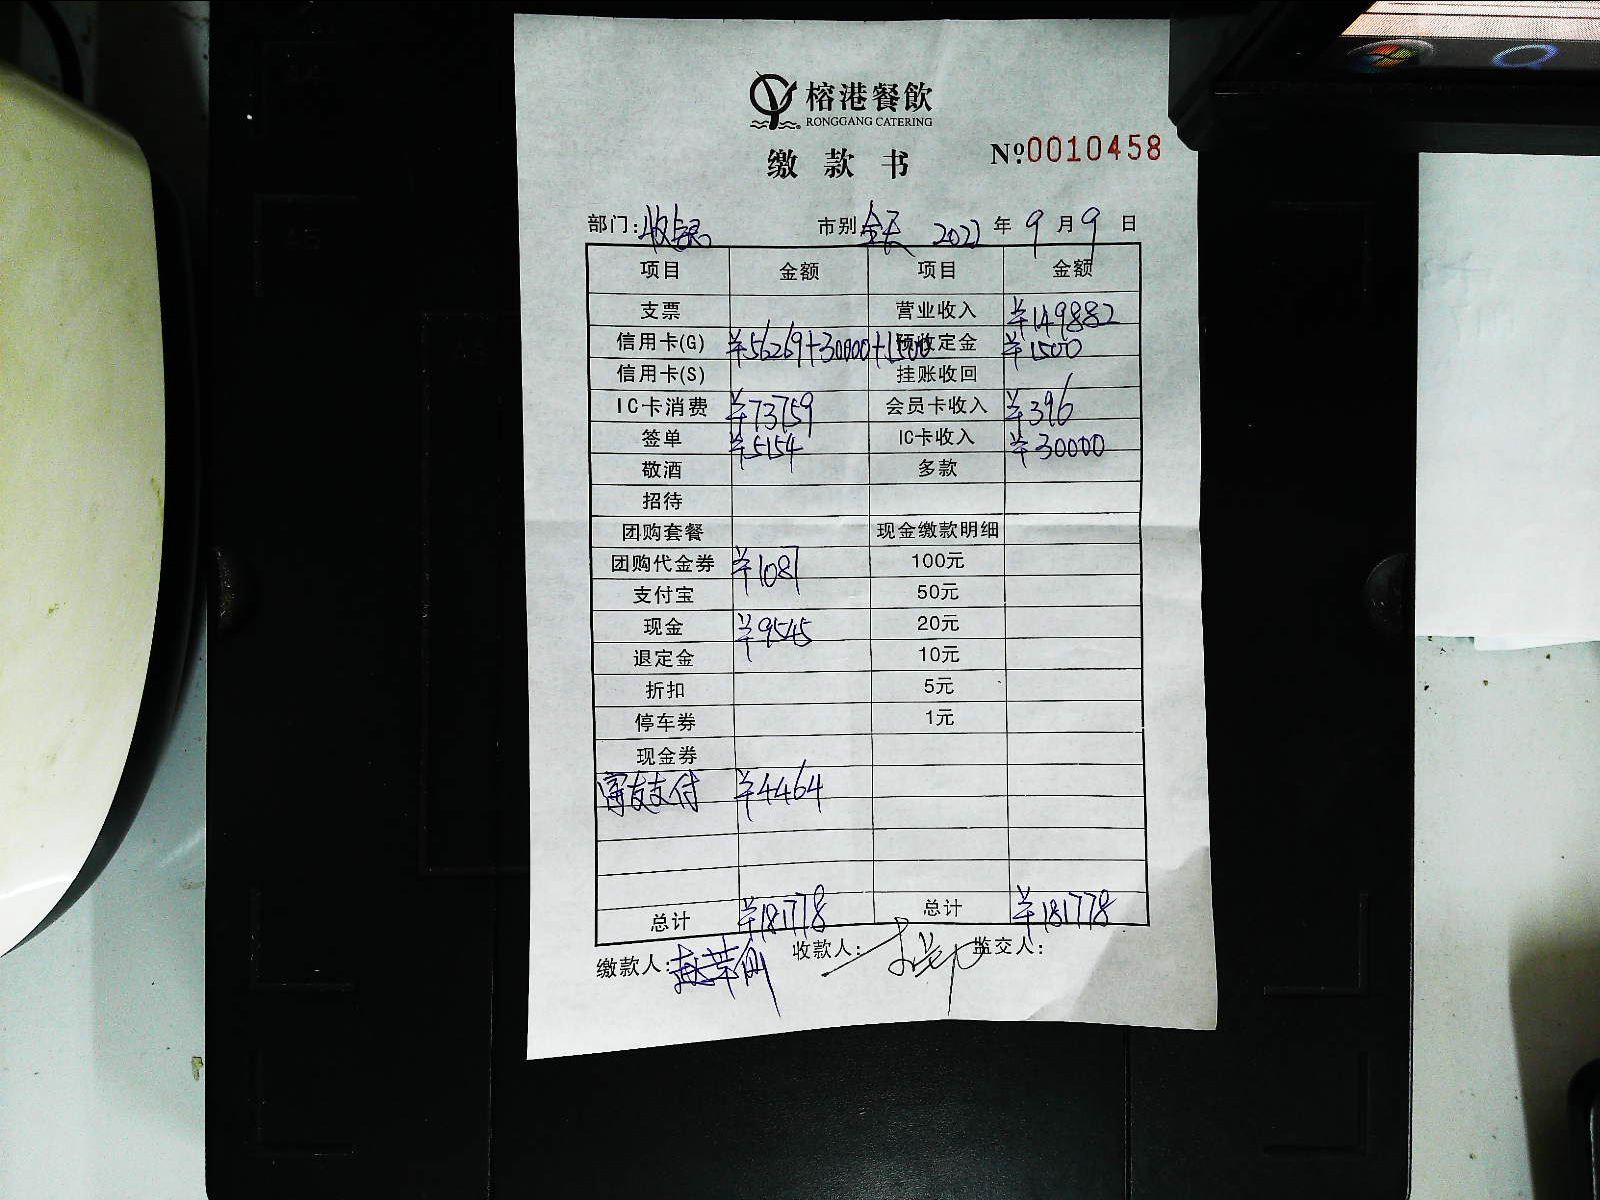 榕港餐飲
RONGGANG CATERING
缴款书 №0010458
部门:收银 市别 全天 2022年9月9日
项目 金额 项目 金额
支票 营业收入 ¥149882
信用卡(G) ¥56269+30000+1500 预收定金 ¥1500
信用卡(S) 挂账收回
IC卡消费 ¥73759 会员卡收入 ¥396
签单 ¥5154 IC卡收入 ¥30000
敬酒 多款
招待
团购套餐 现金缴款明细
团购代金券 ¥1087 100元
支付宝 50元
现金 ¥9545 20元
退定金 10元
折扣 5元
停车券 1元
现金券
支付 ¥4464
总计 ¥181778 总计 ¥181778
缴款人: 收款人: 监交人: